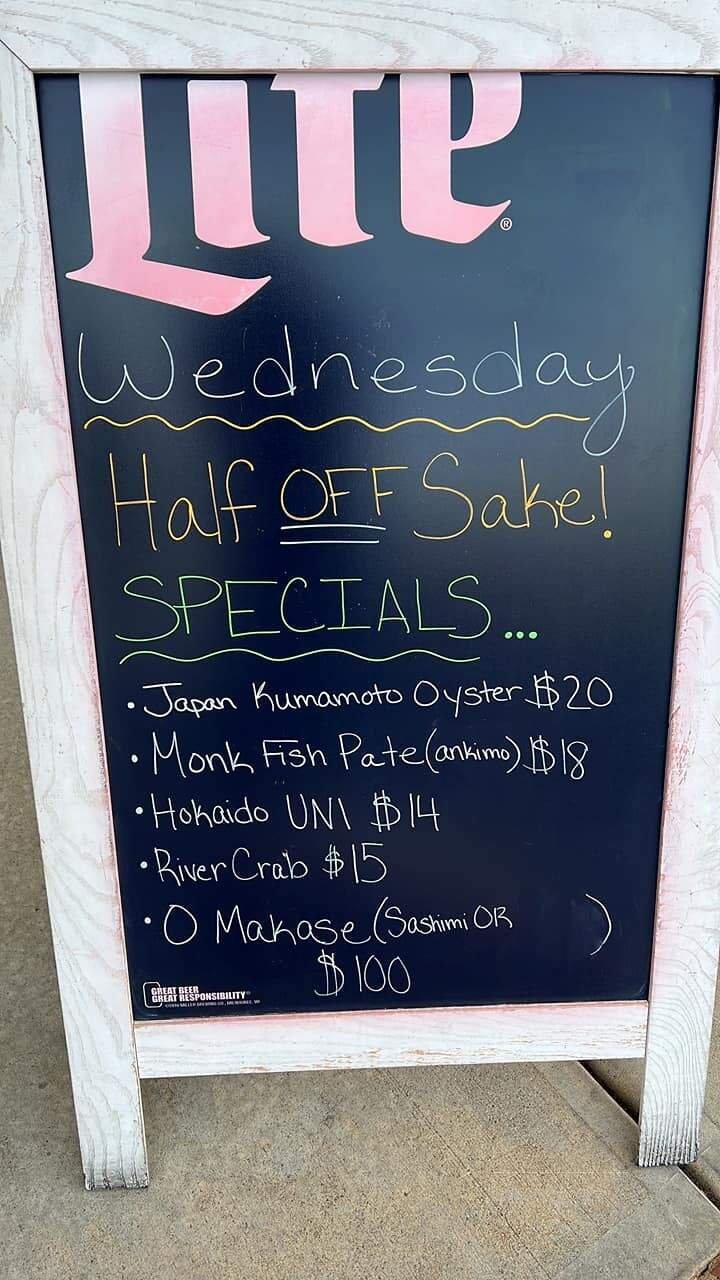 Lite®
Wednesday
Half OFF Sake!
SPECIALS...
• Japan Kumamoto Oyster $20
• Monk Fish Pate (ankimo) $18
• Hokaido UNI $14
• River Crab $15
• O Makase (Sashimi OR )
$100
GREAT BEER
GREAT RESPONSIBILITY®